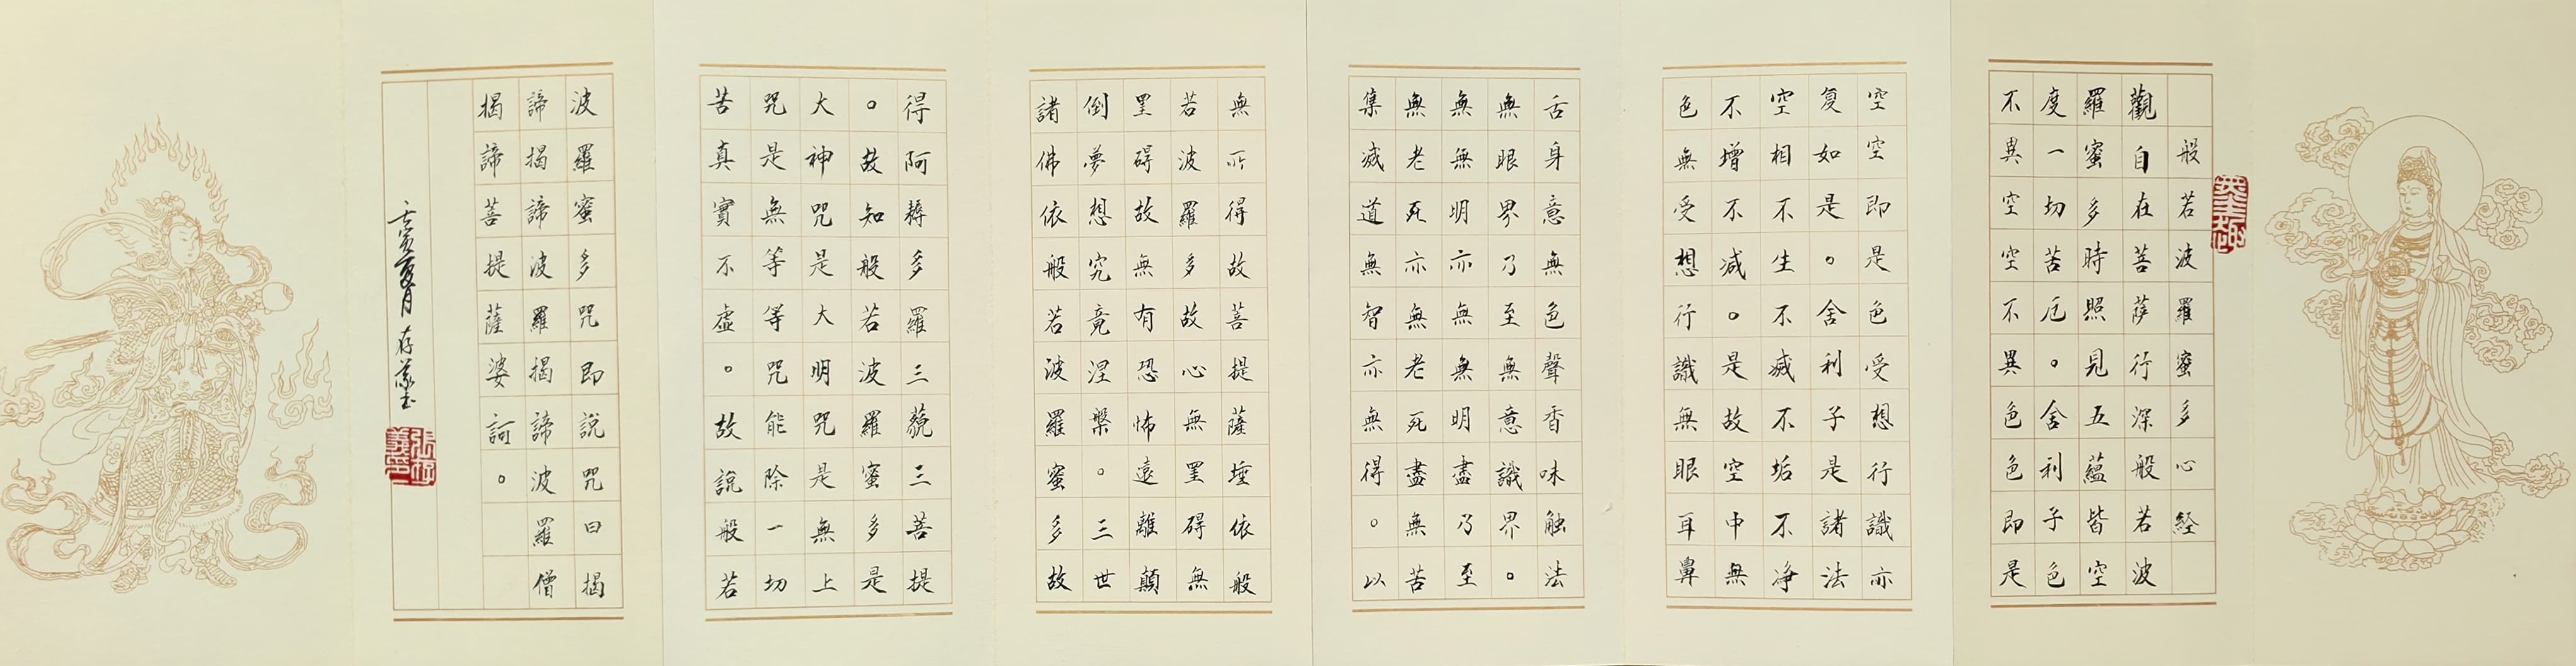 般若波羅蜜多心経
觀自在菩萨行深般若波
羅蜜多時照見五蘊皆空
度一切苦厄。舍利子色
不異空空不異色色即是
空空即是色受想行識亦
复如是。舍利子是諸法
空相不生不滅不垢不净
不增不減。是故空中無
色無受想行識無眼耳鼻
舌身意無色聲香味触法
無眼界乃至無意識界。
無無明亦無無明盡乃至
無老死亦無老死盡無苦
集滅道無智亦無得。以
無所得故菩提薩埵依般
若波羅多故心無罣碍無
罣碍故無有恐怖遠離顛
倒夢想究竟涅槃。三世
諸佛依般若波羅蜜多故
得阿耨多羅三藐三菩提
。故知般若波羅蜜多是
大神咒是大明咒是無上
咒是無等等咒能除一切
苦真實不虛。故說般若
波羅蜜多咒即說咒曰揭
諦揭諦波羅揭諦波羅僧
揭諦菩提薩婆訶。
壬寅夏月 存義書
張存義印